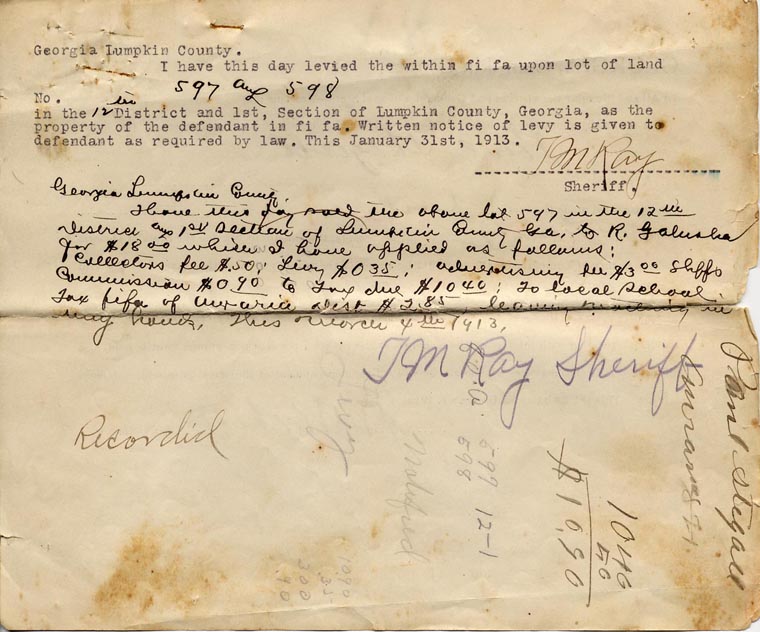 Georgia Lumpkin County.
I have this day levied the within fi fa upon lot of land
No. 597 and 598
in the 12th District and 1st, Section of Lumpkin County, Georgia, as the
property of the defendant in fi fa. Written notice of levy is given to
defendant as required by law. This January 31st, 1913.
T M Ray
Sheriff.
Georgia Lumpkin County.
I have this day sold the above lot 597 in the 12th
District and 1st Section of Lumpkin County Ga, to R. Galusha
for $18.00 which I have applied as follows:
Collectors fee $.50; Levy $0.35; advertising fee $3.00 Shffs
Commission $0.90 to Tax due $10.40; To local School
Tax fifa of dist $2.85, leaving nothing in
my hands, This March 4th 1913,
T M Ray Sheriff
Recordid
Levy
Notified
597 12-1
598
1040
50
$10.90
1090
35
300
90
Stegall